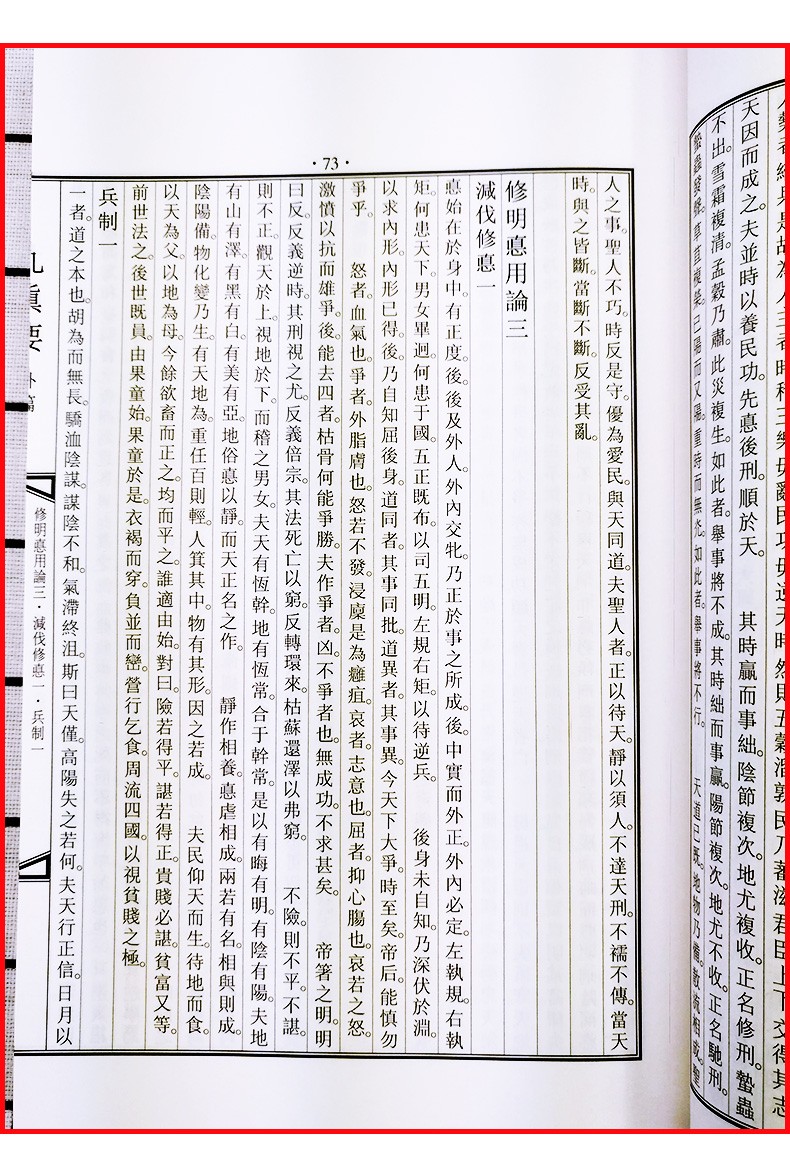 天因而成之。夫並時以養民功。先悳後刑。順於天。 其時贏而事絀。陰節複次。地尤複收。正名修刑。蟄蟲
不出。雪霜複清。孟穀乃肅。此災複生。如此者。舉事將不成。其時絀而事贏。陽節複次。地尤不收。正名馳刑。
·73·
人之事。聖人不巧。時反是守。優為愛民。與天同道。夫聖人者。正以待天。靜以須人。不達天刑。不襦不傳。當天
時。與之皆斷。當斷不斷。反受其亂。
修明悳用論三
減伐修悳一
悳始在於身。中有正度。後後及外人。外內交牝。乃正於事之所成。後。中實而外正。外內必定。左執規。右執
矩。何患天下。男女畢迥。何患于國。五正既布。以司五明。左規右矩。以待逆兵。 後身未自知。乃深伏於淵。
以求內形。內形已得。後乃自知屈後身。道同者。其事同批。道異者。其事異。今天下大爭。時至矣。帝后。能慎勿
爭乎。 怒者。血氣也。爭者。外脂膚也。怒若不發。浸廩是為癰疽。哀者。志意也。屈者。抑心腸也。哀若之怒。
激憤以抗而雄爭。後能去四者。枯骨何能爭勝。夫作爭者。凶。不爭者也。無成功。不求甚矣。 帝箸之明。明
曰。反。反義逆時。其刑視之尤。反義倍宗。其法死亡以窮。反轉環來。枯蘇還澤以弗窮。 不險。則不平。不諶。
則不正。觀天於上。視地於下。而稽之男女。夫天有恆幹。地有恆常。合于幹常。是以有晦有明。有陰有陽。夫地
有山有澤。有黑有白。有美有亞。地俗悳以靜。而天正名之作。 靜作相養。悳虐相成。兩若有名。相與則成。
陰陽備物。化變乃生。有天地為。重任百則輕。人箕其中。物有其形。因之若成。 夫民仰天而生。待地而食。
以天為父。以地為母。今餘欲畜而正之。均而平之。誰適由始。對曰。險若得平。諶若得正。貴賤必諶。貧富又等。
前世法之。後世既員。由果童始。果童於是。衣褐而穿。負並而巒。營行乞食。周流四國。以視貧賤之極。
兵制一
一者。道之本也。胡為而無長。驕洫陰謀。謀陰不和。氣滯終沮。斯曰天僅。高陽失之若何。夫天行正信。日月以
修明悳用論三·減伐修悳一·兵制一